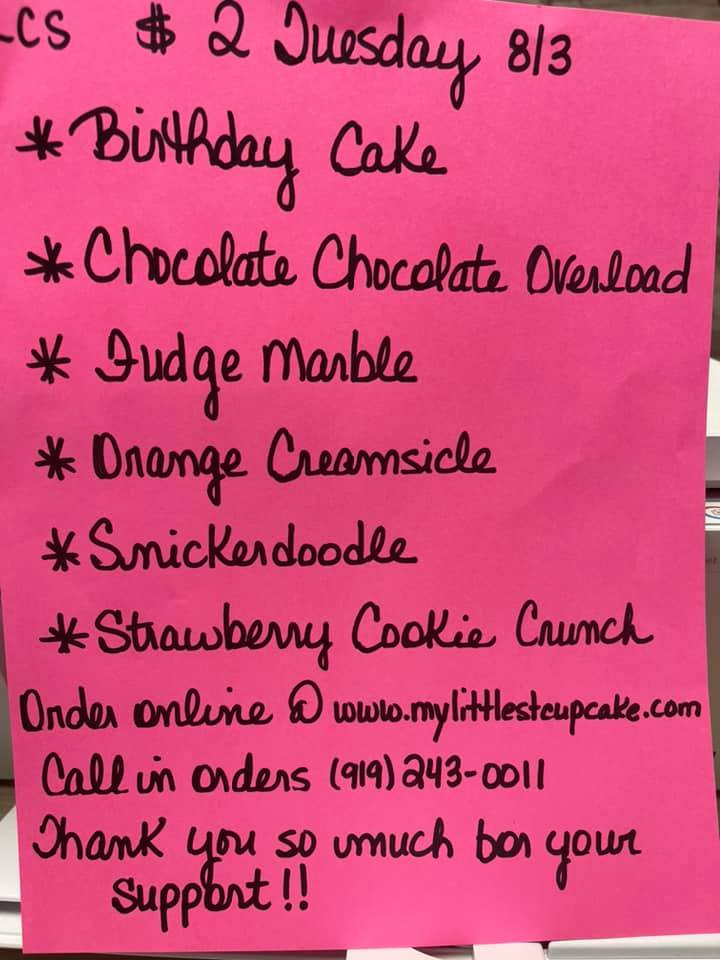 LCS $ 2 Tuesday 8/3
* Birthday Cake
* Chocolate Chocolate Overload
* Fudge Marble
* Orange Creamsicle
* Snickerdoodle
* Strawberry Cookie Crunch
Order online @ www.mylittlestcupcake.com
Call in orders (919) 243-0011
Thank you so much for your
support!!